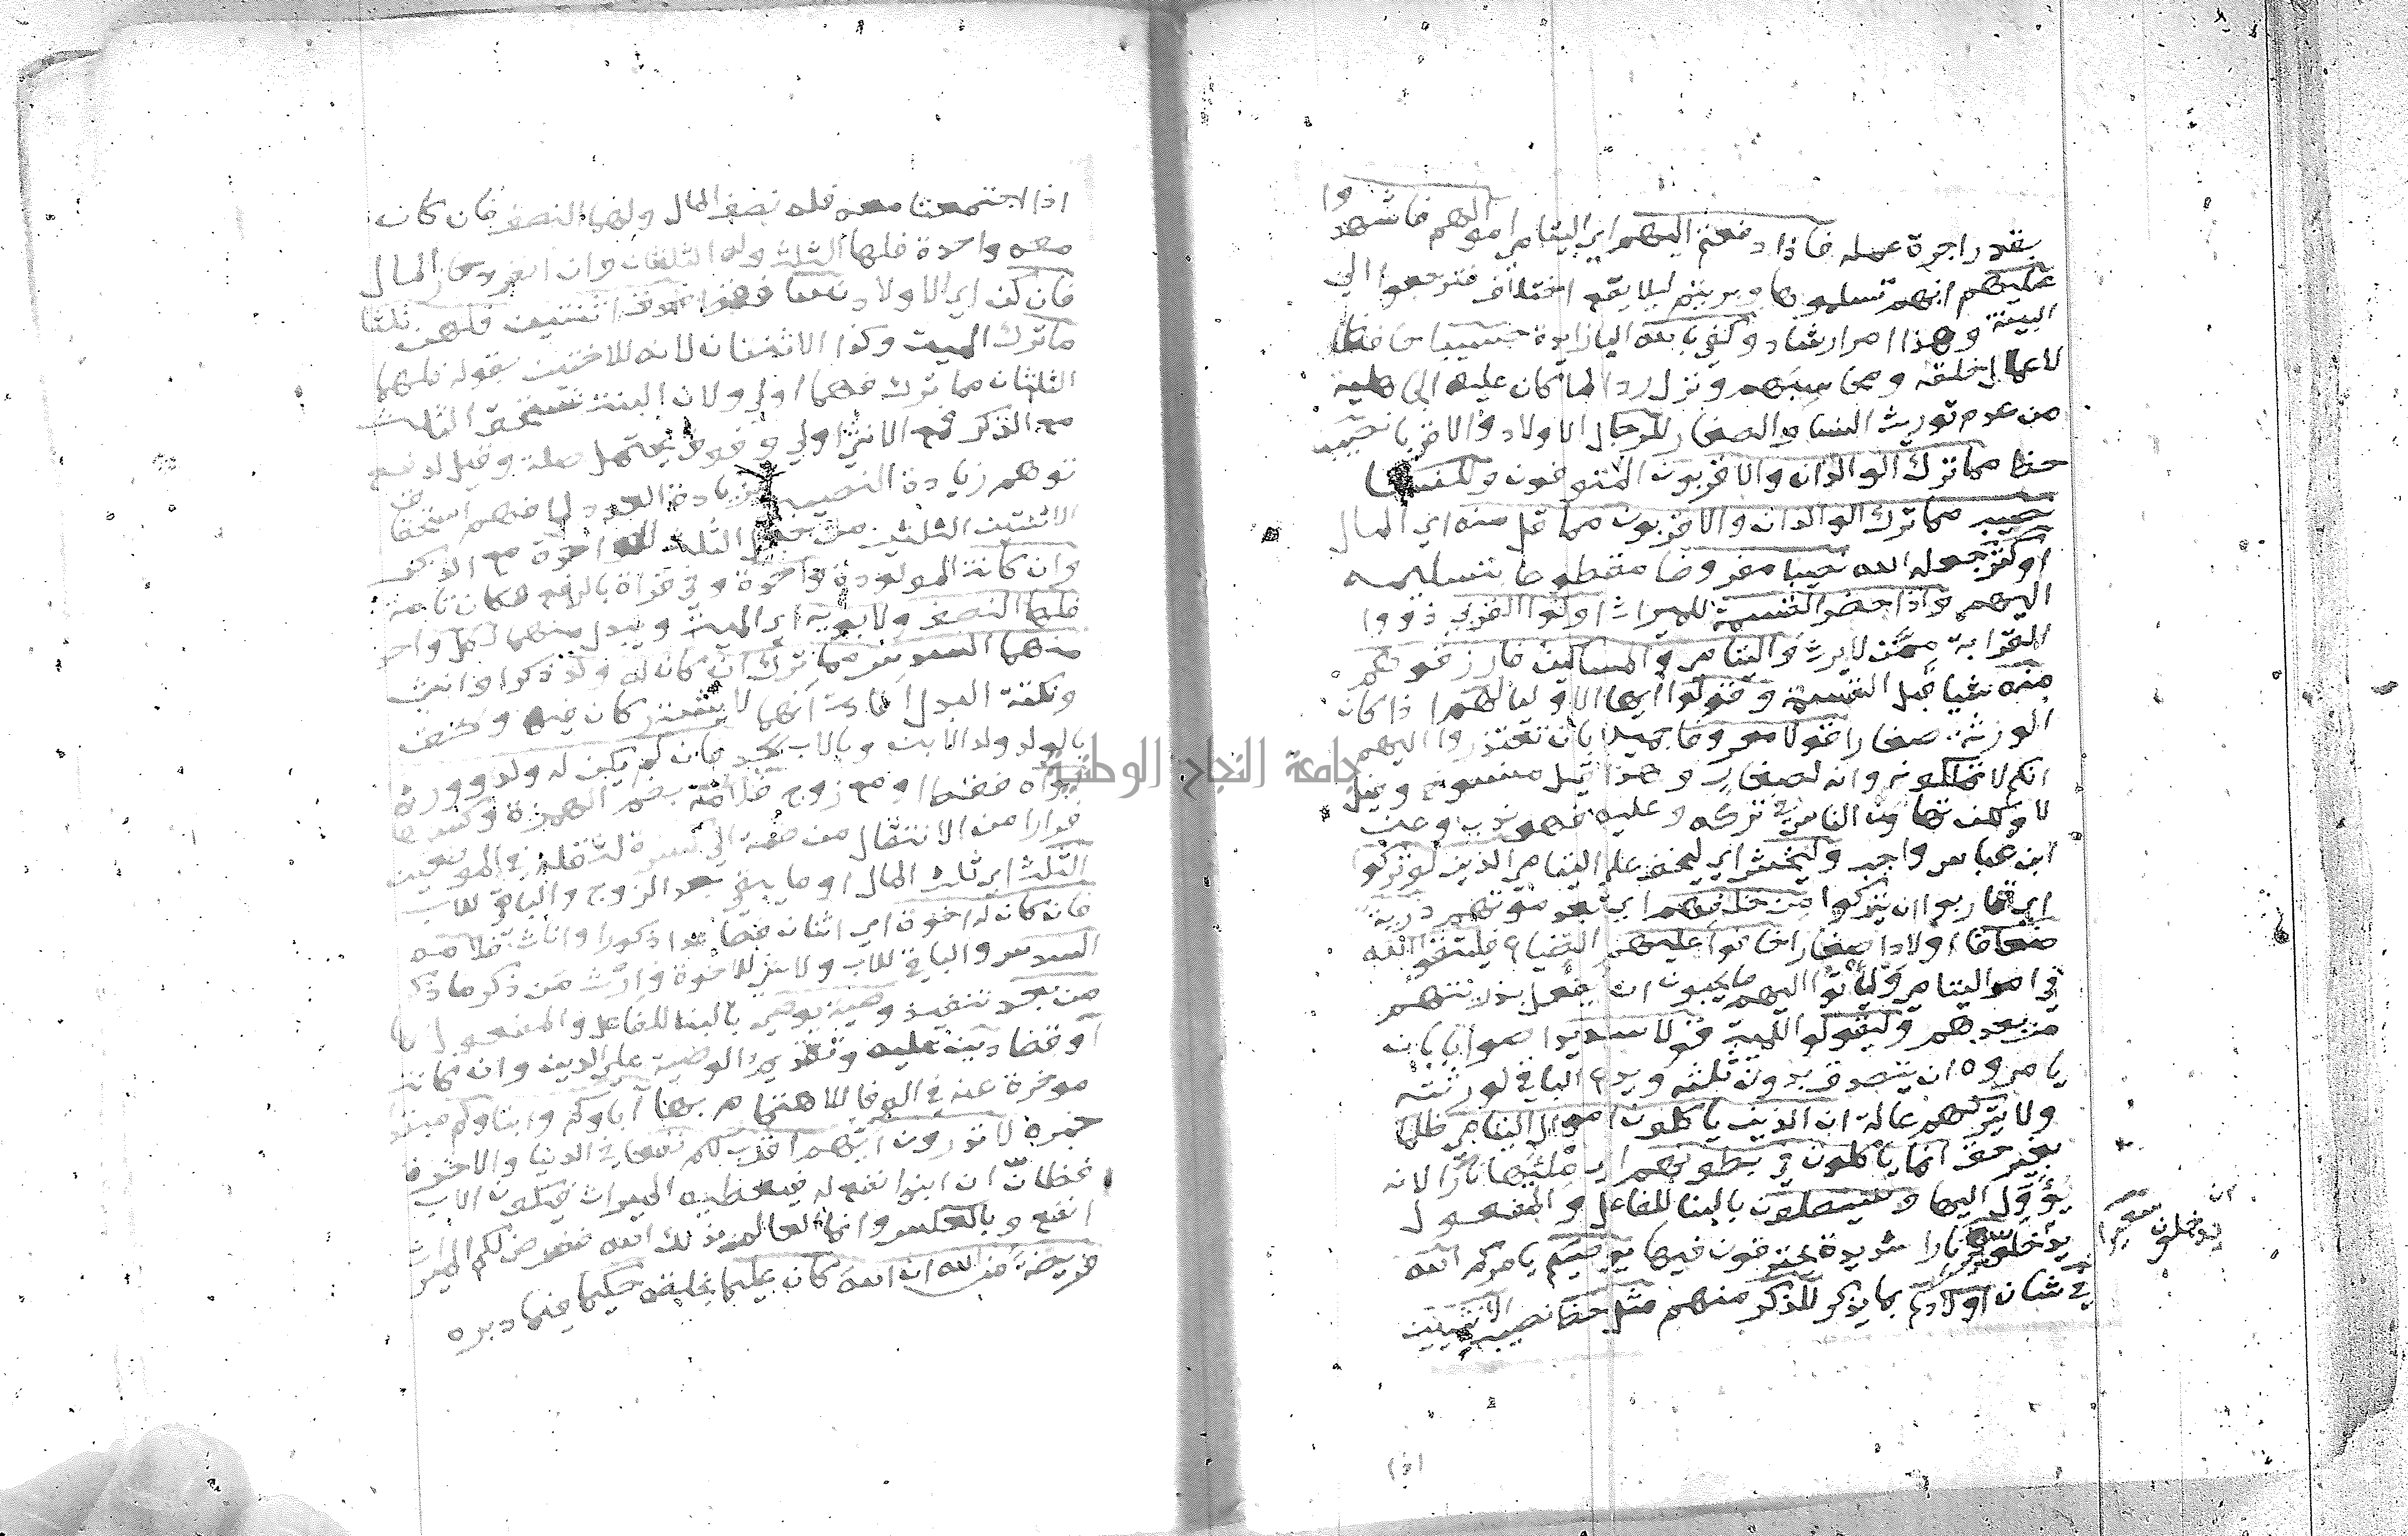 بقدر اجرة عمله فاذا دفعتم اليهم اي اليتامي اموالهم فاشهدوا
عليهم انهم تسلموها وبريتم ليلا يقع اختلاف فترجعوا الي
البينة وهذا امر ارشاد وكفي بالله اليا زايدة حسيبا حافظا
لاعمال خلقه ومحاسبهم ونزل ردا لما كان عليه الجاهلية
من عدم توريث النسا والصغار للرجال الاولاد والاقربا نصيب
حظ مما ترك الوالدان والاقربون المتوفون وللنسا
نصيب مما ترك الوالدان والاقربون مما قل منه اي المال
او كثر جعله الله نصيبا مفروضا مقطوعا بتسليمه
اليهم واذا حضر القسمة للميراث اولوا القربي ذووا
القرابة ممن لا يرث واليتامي والمساكين فارزقوهم
منه شيا قبل القسمة وقولوا ايها الاوليا لهم اذا كان
الورثة صغارا قولا معروفا جميلا بان تعتذروا اليهم
انكم لا تملكونه وانه لصغار وهذا قيل منسوخ وقيل
لا ولكن تهاون الناس في تركه وعليه فهو ندب وعن
ابن عباس واجب وليخش اي ليخف علي اليتامي الذين لو تركوا
اي قاربوا ان يتركوا من خلفهم اي بعد موتهم ذرية
ضعافا اولادا صغارا خافوا عليهم الضياع فليتقوا الله
في امر اليتامي وليأتوا اليهم ما يحبون ان يفعل بذريتهم
من بعدهم وليقولوا للميت قولا سديدا صوابا بان
يامروه ان يتصدق بدون ثلثه ويدع الباقي لورثته
ولا يتركهم عالة ان الذين ياكلون اموال اليتامي ظلما
بغير حق انما ياكلون في بطونهم اي ملئها نارا لانه
يؤول اليها وسيصلون بالبنا للفاعل والمفعول
يدخلون سعيرا نارا شديدة يحترقون فيها يوصيكم يامركم الله
في شان اولادكم بما يذكر للذكر منهم مثل حظ نصيب الانثيين
يدخلون سعيرا
اذا
اذا اجتمعتا معه فله نصف المال ولهما النصف فان كان
معه واحدة فلها الثلث وله الثلثان وان انفرد حاز المال
فان كن اي الاولاد نسا فقط فوق اثنتين فلهن ثلثا
ما ترك الميت وكذا الاثنتان لانه للاختين بقوله فلهما
الثلثان مما ترك فهما اولي ولان البنت تستحق الثلث
مع الذكر فمع الانثي اولي وفوق يحتمل صلة وقيل لدفع
توهم زيادة النصيب بزيادة العدد لما فهم استحقاق
الاثنتين الثلثين من جعل الثلث للواحدة مع الذكر
وان كانت المولودة واحدة وفي قراة بالرفع فكان تامة
فلها النصف ولابويه اي الميت ويبدل منهما لكل واحد
منهما السدس مما ترك ان كان له ولد ذكر او انثي
ونكتة البدل افادة انهما لا يشتركان فيه والحق
بالولد ولد الابن وبالاب الجد فان لم يكن له ولد وورثه
ابواه فقط او مع زوج فلامه بضم الهمزة وكسرها
فرارا من الانتقال من ضمة الي كسرة لثقله في الموضعين
الثلث اي ثلث المال او ما يبقي بعد الزوج والباقي للاب
فان كان له اخوة اي اثنان فصاعدا ذكورا واناثا فلامه
السدس والباقي للاب ولا شي للاخوة وارث من ذكر ما ذكر
من بعد تنفيذ وصية يوصي بالبنا للفاعل والمفعول بها
او قضا دين عليه وتقديم الوصية علي الدين وان كانت
موخرة عنه في الوفا للاهتمام بها آباوكم وابناوكم مبتدا
خبره لا تدرون ايهم اقرب لكم نفعا في الدنيا والاخرة
فظان ان ابنه انفع له فيعطيه الميراث فيكون الاب
انفع وبالعكس وانما العالم بذلك الله ففرض لكم الميراث
فريضة من الله ان الله كان عليما بخلقه حكيما فيما دبره
جامعة النجاح الوطنية